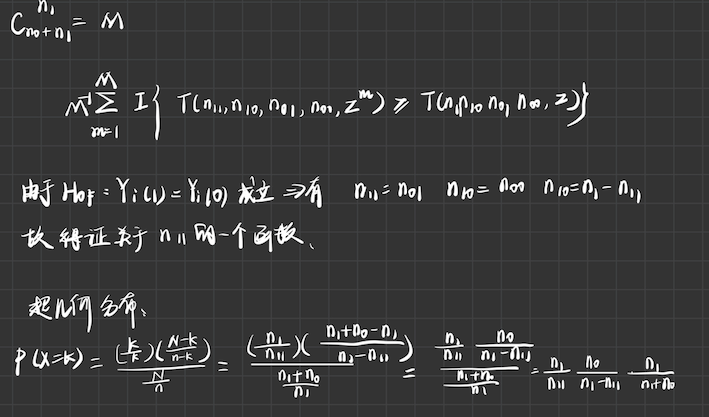 C_{n_0+n_1}^{n_1} = M
M^{-1} \sum_{m=1}^{M} I{ T(n_{11}, n_{10}, n_{01}, n_{00}, z^m) ≥ T(n_{11} n_{10} n_{01} n_{00}, z)}
由于 H_{0F}: Y_i(1) = Y_i(0) 成立 ⇒有 n_{11} = n_{01} n_{10} = n_{00} n_{10} = n_1 - n_{11}
故 得证关于 n_{11} 的一个函数、
超几何分布:
P(X=k) = \frac{(\frac{k}{k})(\frac{N-k}{n-k})}{\frac{N}{n}} = \frac{(\frac{n_1}{n_{11}})(\frac{n_1+n_0-n_1}{n_1-n_{11}})}{\frac{n_1+n_0}{n_1}} = \frac{\frac{n_1}{n_{11}} \frac{n_0}{n_1-n_{11}}}{\frac{n_1+n_0}{n_1}} = \frac{n_1}{n_{11}} \frac{n_0}{n_1-n_{11}} \frac{n_1}{n_1+n_0}